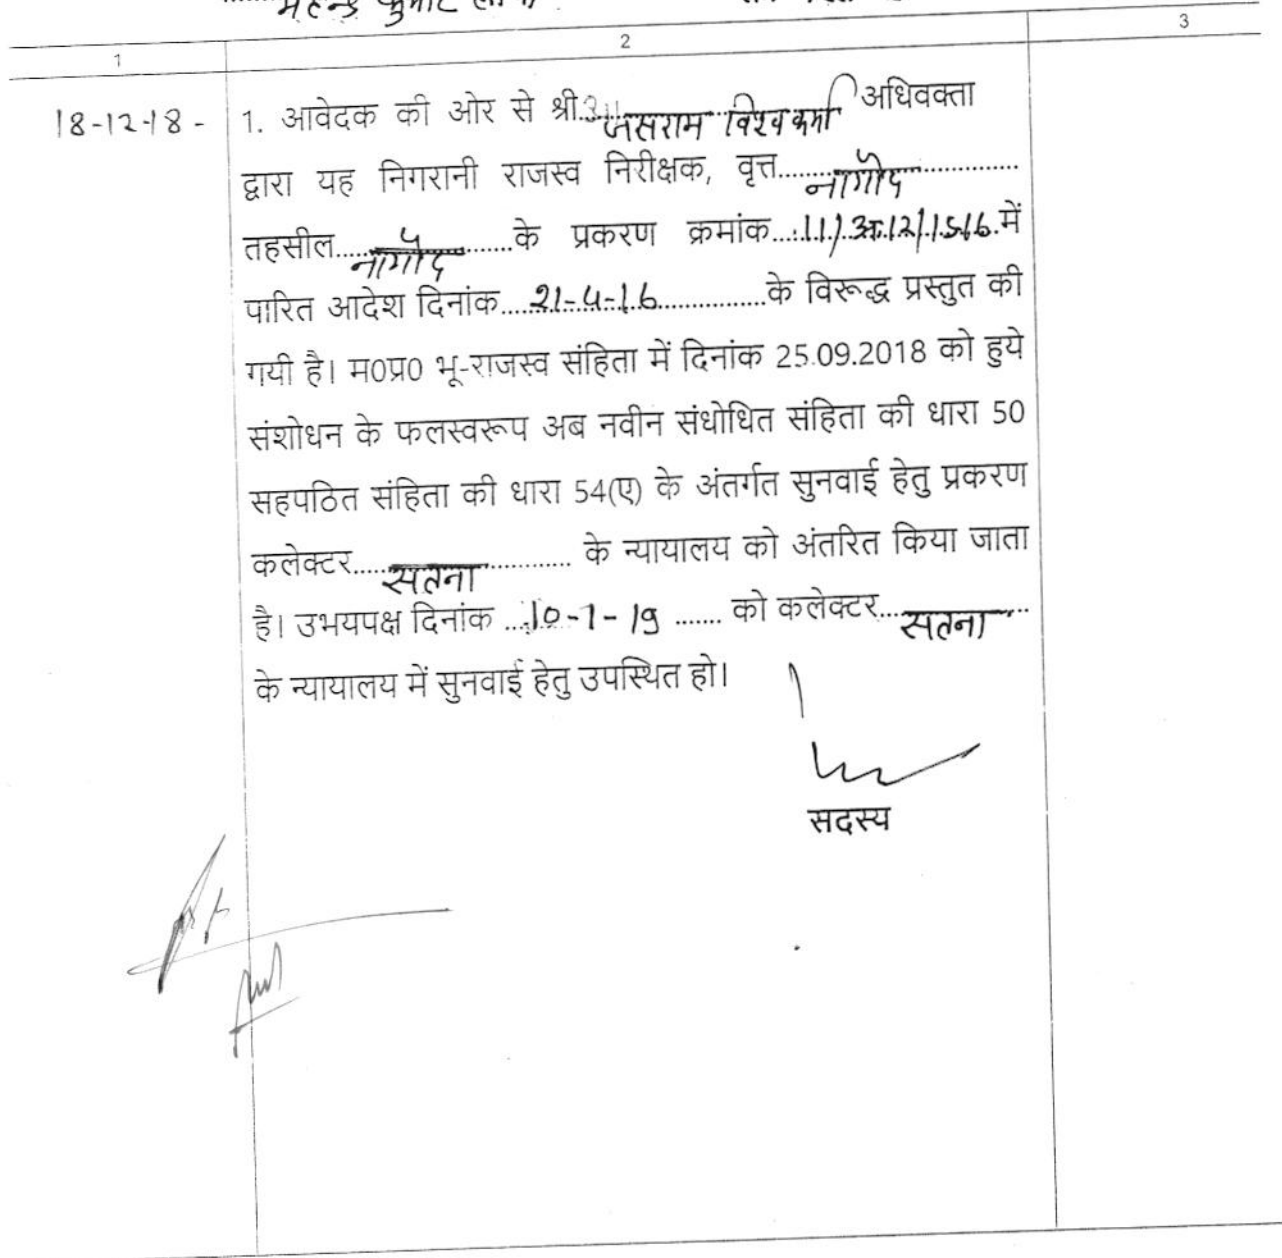 महेन्द्र कुमार
1 2 3
18-12-18 - 1. आवेदक की ओर से श्री जसराम विश्वकर्मा अधिवक्ता
द्वारा यह निगरानी राजस्व निरीक्षक, वृत्त.....नागौद.....
तहसील.....नागौद.....के प्रकरण क्रमांक...11/अ12/15-16.में
पारित आदेश दिनांक....21-4-16..............के विरूद्ध प्रस्तुत की
गयी है। म0प्र0 भू-राजस्व संहिता में दिनांक 25.09.2018 को हुये
संशोधन के फलस्वरूप अब नवीन संधोधित संहिता की धारा 50
सहपठित संहिता की धारा 54(ए) के अंतर्गत सुनवाई हेतु प्रकरण
कलेक्टर.....सतना............ के न्यायालय को अंतरित किया जाता
है। उभयपक्ष दिनांक ....10-1-19 ....... को कलेक्टर....सतना....
के न्यायालय में सुनवाई हेतु उपस्थित हो।
सदस्य